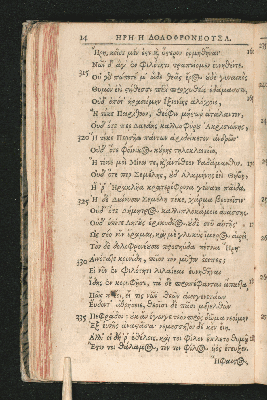 14 ΗΡΗ Η ΔΟΛΟΦΡΟΝΕΟΥΣΑ.
Ἥρη, κεῖσε μὲν ἔστι καὶ ὕστερον ὁρμηθῆναι·
Νῶϊ δ' ἄγ' ἐν φιλότητι τραπείομεν εὐνηθέντε.
315 Οὐ γάρ πώποτέ μ' ὧδε θεᾶς ἔρος οὐδὲ γυναικὸς
Θυμὸν ἐνὶ στήθεσσι περιπροχυθεὶς ἐδάμασσεν,
Οὐδ' ὁπότ' ἠρασάμην Ἰξιονίης ἀλόχοιο,
Ἣ τέκε Πειρίθοον, θεόφιν μήστωρ' ἀτάλαντον·
Οὐδ' ὅτε περ Δανάης καλλισφύρου Ἀκρισιώνης,
320 Ἣ τέκε Περσῆα πάντων ἀριδείκετον ἀνδρῶν·
Οὐδ' ὅτε Φοίνικος κούρης τηλεκλειτοῖο,
Ἣ τέκε μοι Μίνων τε καὶ ἀντίθεον Ῥαδάμανθυν·
Οὐδ' ὅτε περ Σεμέλης, οὐδ' Ἀλκμήνης ἐνὶ Θήβῃ,
Ἥ ῥ' Ἡρακλῆα κρατερόφρονα γείνατο παῖδα·
325 Ἡ δὲ Διώνυσον Σεμέλη τέκε, χάρμα βροτοῖσιν·
Οὐδ' ὅτε Δήμητρος καλλιπλοκάμοιο ἀνάσσης,
Οὐδ' ὁπότε Λητοῦς ἐρικυδέος, οὐδὲ σεῦ αὐτῆς,
Ὡς σέο νῦν ἔραμαι, καί με γλυκὺς ἵμερος αἱρεῖ.
Τὸν δὲ δολοφρονέουσα προσηύδα πότνια Ἥρη·
330 Αἰνότατε κρονίδη, ποῖον τὸν μῦθον ἔειπες;
Εἰ νῦν ἐν φιλότητι λιλαίεαι εὐνηθῆναι
Ἴδης ἐν κορυφῇσι, τὰ δὲ προπέφανται ἅπαντα·
Πῶς κ' ἔοι, εἴ τις νῶϊ θεῶν αἰειγενετάων
Εὕδοντ' ἀθρήσειε, θεοῖσι δὲ πᾶσι μετελθὼν
335 Πεφράδοι; οὐκ ἂν ἔγωγε τεὸν πρὸς δῶμα νεοίμην
Ἐξ εὐνῆς ἀνστᾶσα· νεμεσσητὸν δέ κεν εἴη.
Ἀλλ' εἰ δή ῥ' ἐθέλεις, καί τοι φίλον ἔπλετο θυμῷ,
Ἔστιν τοι θάλαμος, τόν τοι φίλος υἱὸς ἔτευξεν
Ἥφαιστος,